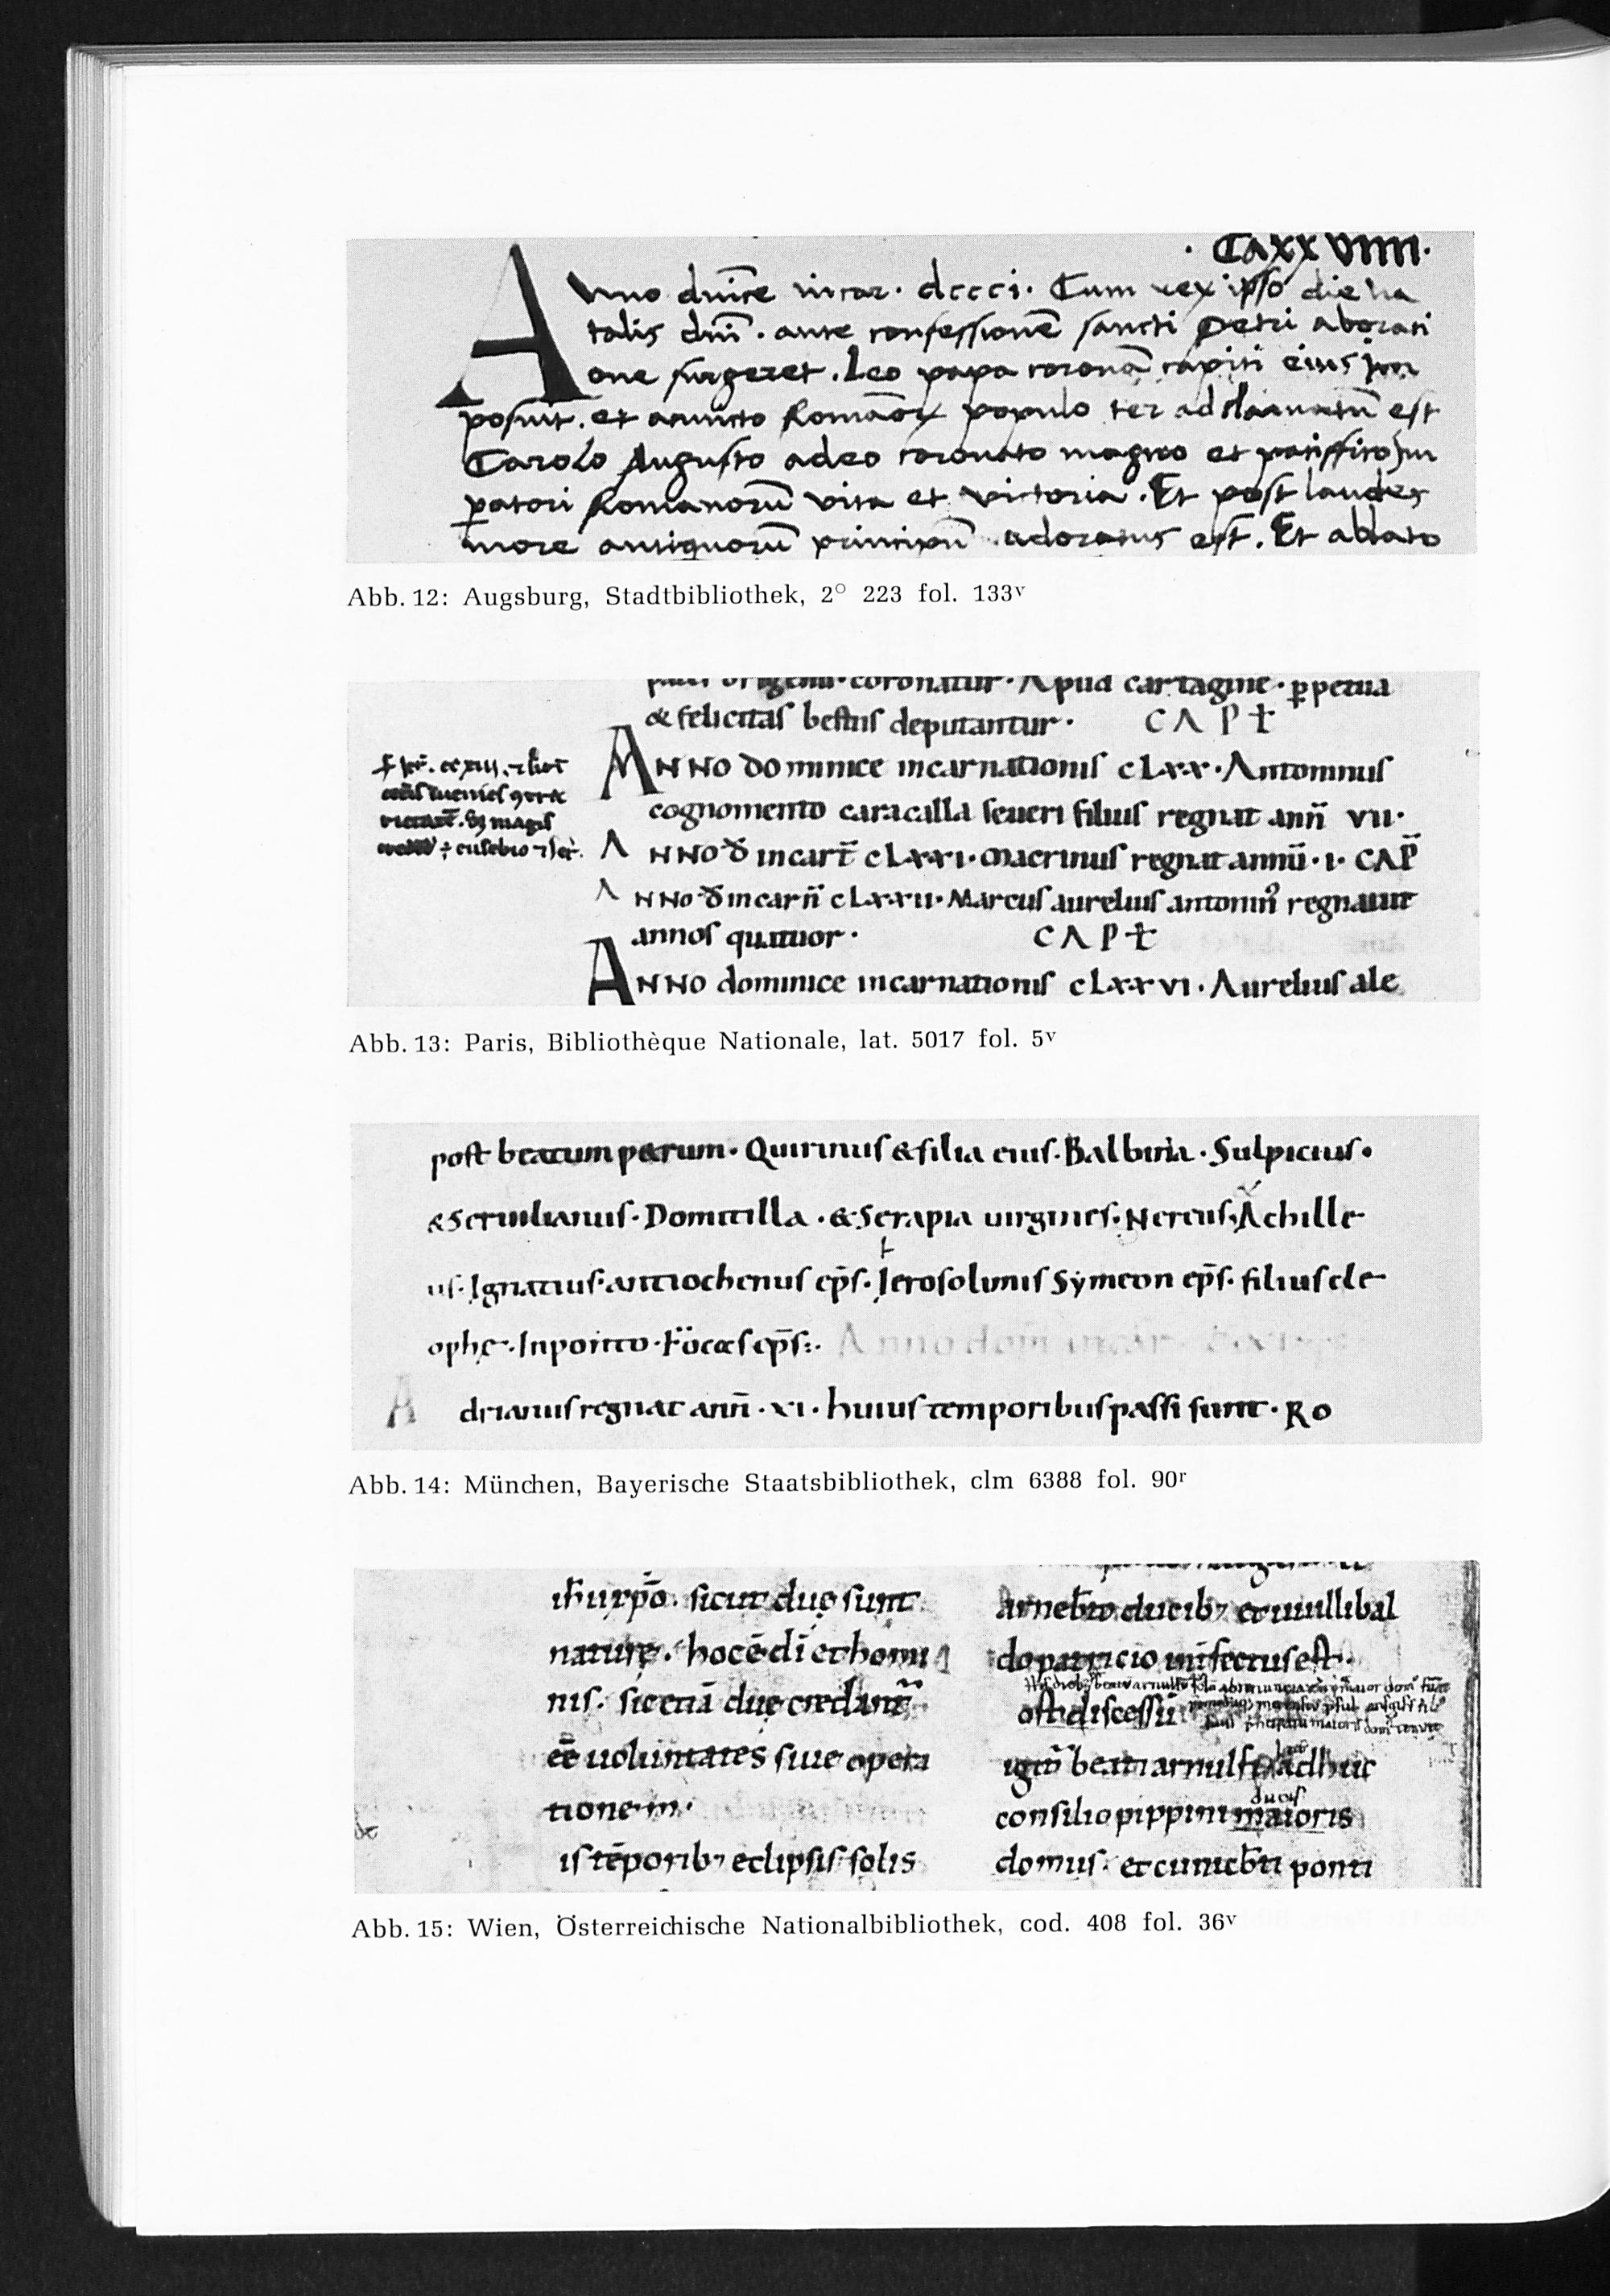 · Caxx viiii ·
Anno dnice incar · dccci · Cum rex ipso die na
talis dni · ante confessione sancti petri aborati
one surgeret . Leo papa corona capiti eius im
posuit . et a cuncto Romaor populo ter adclamatu est
Carolo Augusto adeo coronato magno et pacifico im
patori Romanoru vita et victoria . Et post laudes
more antiquoru principu adoratus est . Et ablato
Abb. 12: Augsburg, Stadtbibliothek, 2° 223 fol. 133v
coronatur · Apud cartagine · ꝑpetua
& felicitas bestiis deputantur · CAPt
ANNO dominice incarnationis cLxx · Antoninus
cognomento caracalla seueri filius regnat ann̄ vii ·
ANNO d incarn̄ cLxxi · Macrinus regnat annū · i · CAP̄
ANNO d incarn̄ cLxxii · Marcus aurelius antonin᾽ regnauit
annos quatuor · CAPt
ANNO dominice incarnationis cLxxvi · Aurelius ale
Abb. 13: Paris, Bibliothèque Nationale, lat. 5017 fol. 5v
post beatum petrum · Quirinus & filia eius · Balbina · Sulpicius ·
& Seruilianus · Domitilla · & Serapia uirgines · Nereus, Achille
us · Ignatius · antiochenus ep̄s · Ierosolimis Symeon ep̄s · filius cle
ophe · Inponto · Focas ep̄s · Anno dom̄ incar̄
Adrianus regnat ann̄ · xi · huius temporibus passi sunt · Ro
Abb. 14: München, Bayerische Staatsbibliothek, clm 6388 fol. 90r
ih̄u xp̄o . sicut duę sunt
naturę . hoc ē di et homi
nis . sic etiā duę credant᷑
eē uoluntates siue opera
tione in ·
is tēporib; eclipsis solis
arnebto ducib; et uuillibal
do patricio interfectus est .
ost discessū
beati arnulfi adhuc
ducis
consilio pippini maioris
domus . et cunicb̄ti ponti
Abb. 15: Wien, Österreichische Nationalbibliothek, cod. 408 fol. 36v